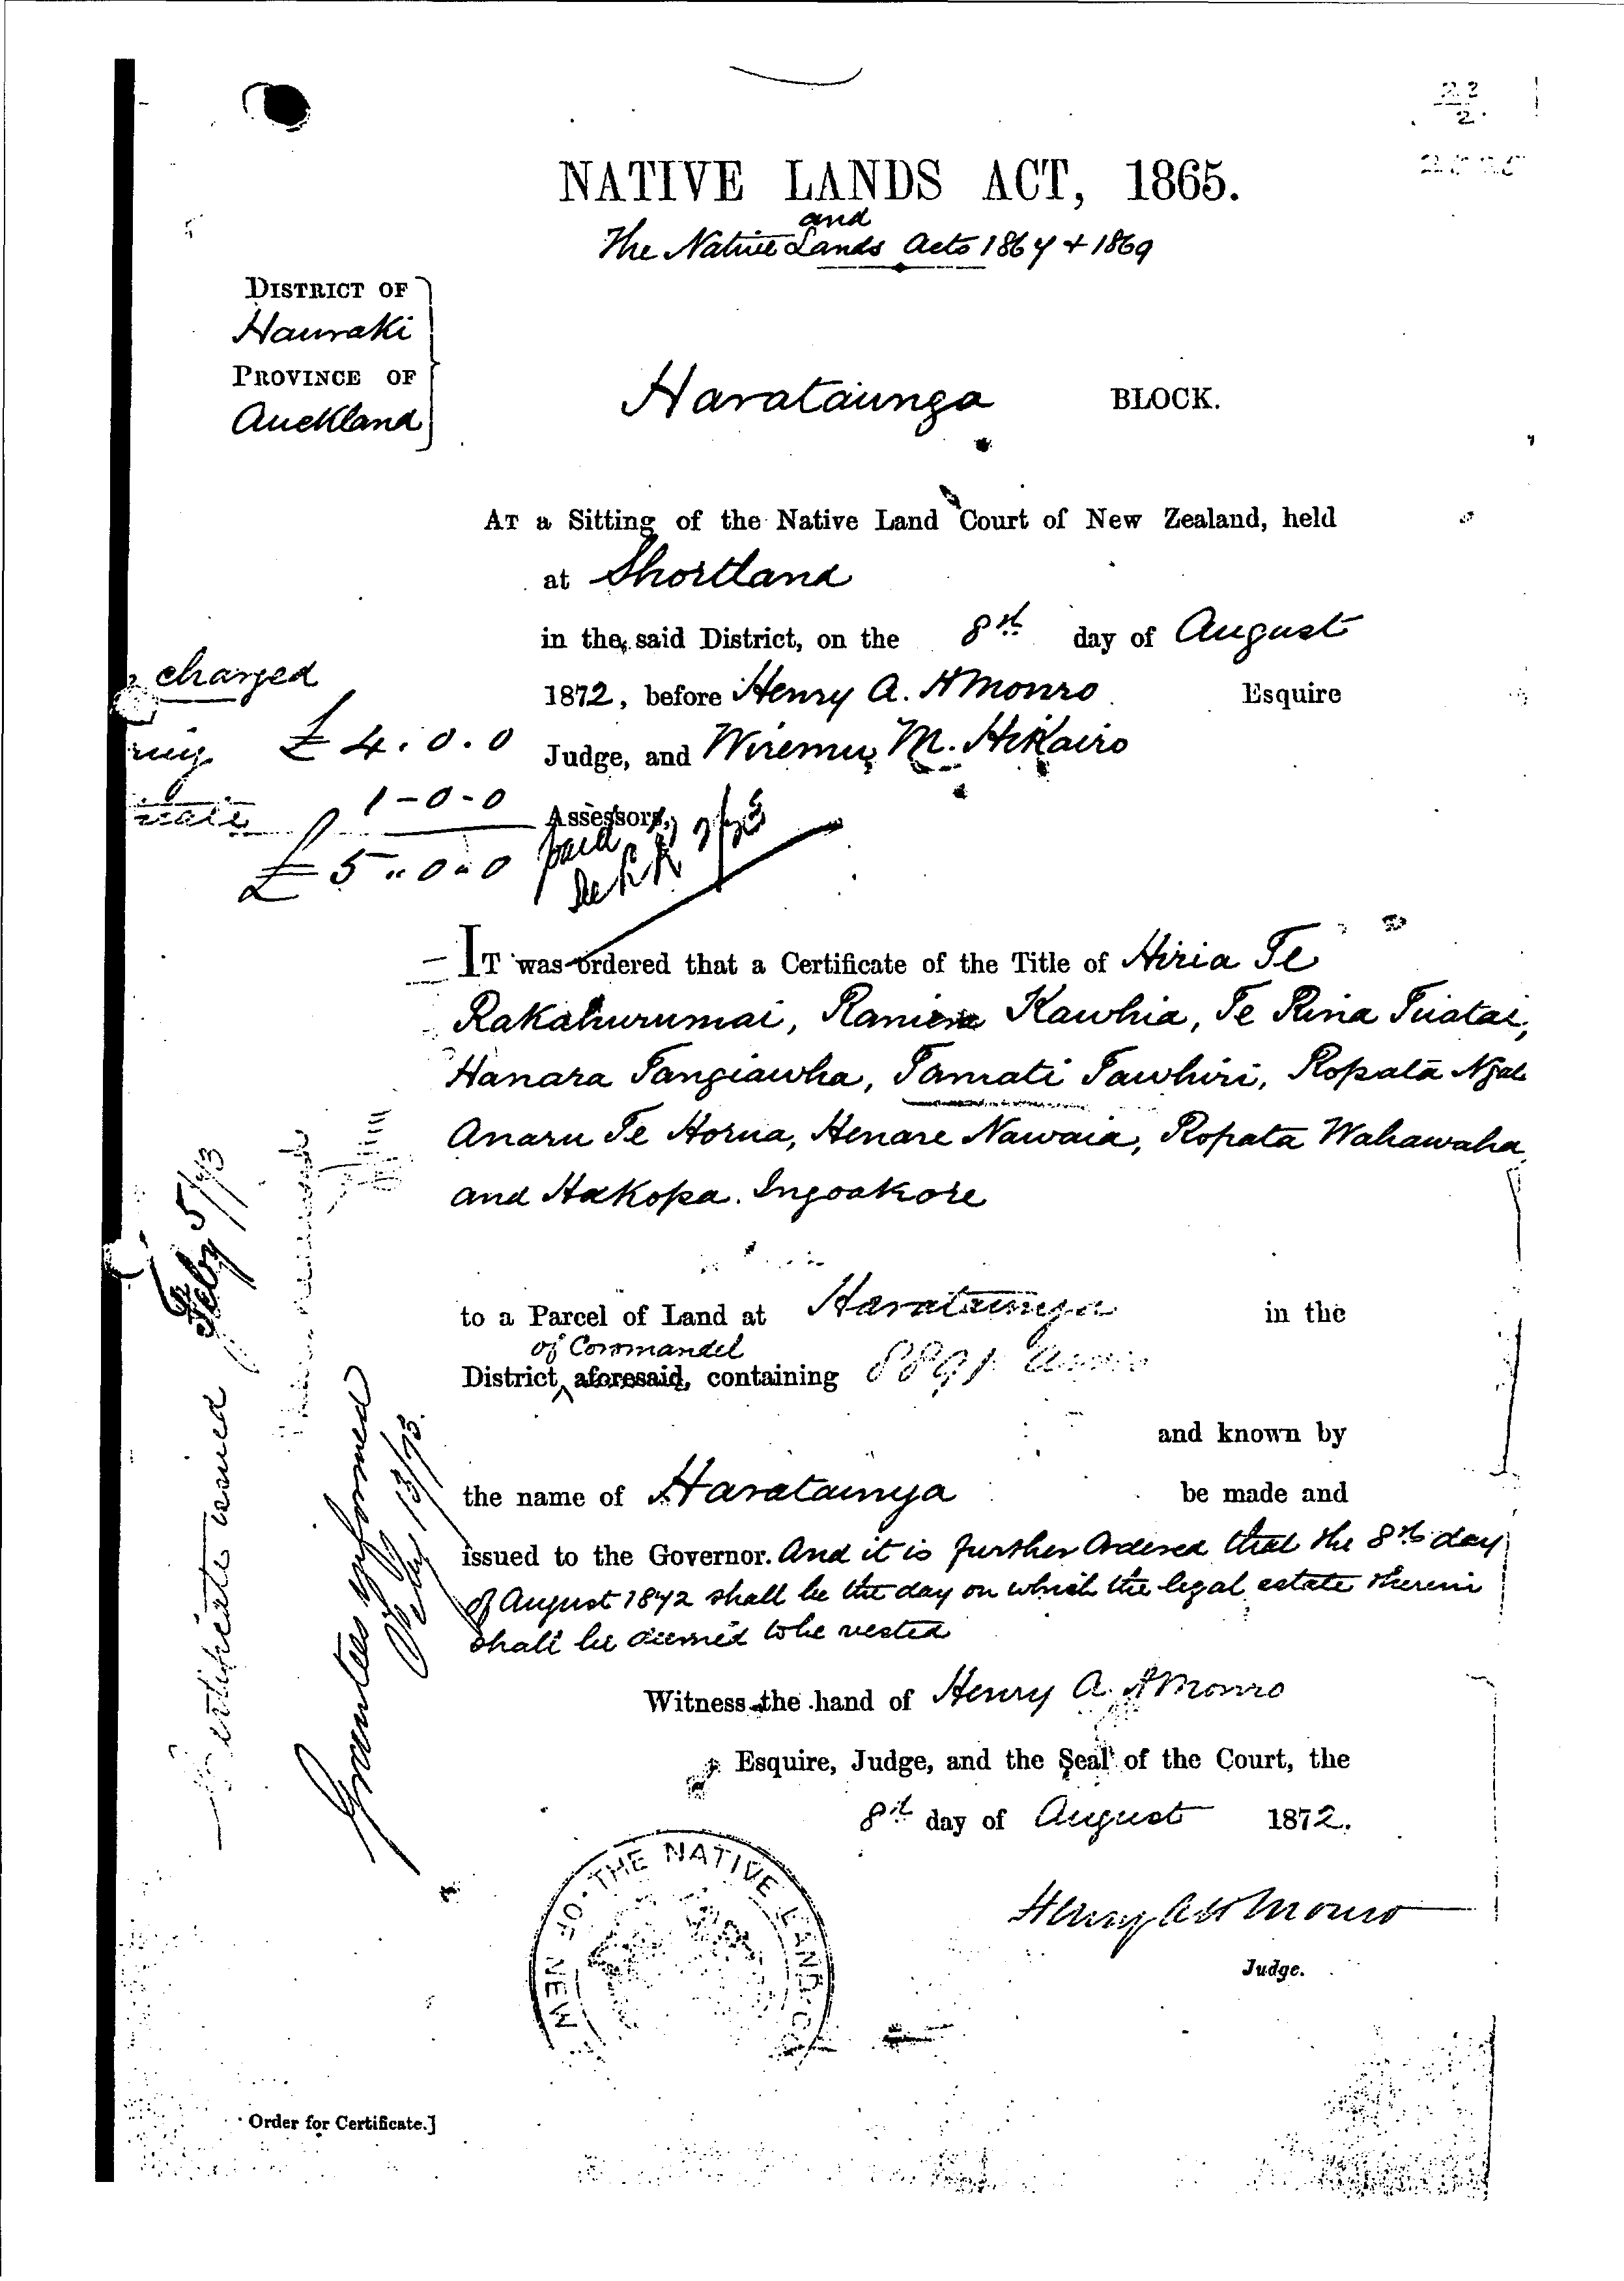 NATIVE LANDS ACT, 1865.
and
The Native Lands Acts 1867 + 1869
DISTRICT OF
Hauraki
PROVINCE OF
Auckland
Harataunga BLOCK.
AT a Sitting of the Native Land Court of New Zealand, held
at Shortland
in the said District, on the 8th day of August
1872, before Henry A. H Monro Esquire
Judge, and Wiremu M. Hikairo
Assessors,
charged
£4.0.0
1-0-0
£5"0"0
paid
IT was ordered that a Certificate of the Title of Hiria Te
Rakahurumai, Raniera Kawhia, Te Rina Tuatai,
Hanara Tangiawha, Tamati Tawhiri, Ropata Ngati
Anaru Te Horua, Henare Nawaia, Ropata Wahawaha
and Hakopa Ingoakore
to a Parcel of Land at Harataunga in the
of Coromandel
District aforesaid, containing 8891 acres
and known by
the name of Harataunga be made and
issued to the Governor. And it is further Ordered that the 8th day
of August 1872 shall be the day on which the legal estate therein
shall be deemed to be vested
Witness the hand of Henry A. H Monro
Esquire, Judge, and the Seal of the Court, the
8th day of August 1872.
Henry A H Monro
Judge.
Certificate issued Feby 5/73
Grantees informed
Feby 13/73.
THE NATIVE LAND CO
OF NEW
Order for Certificate.]